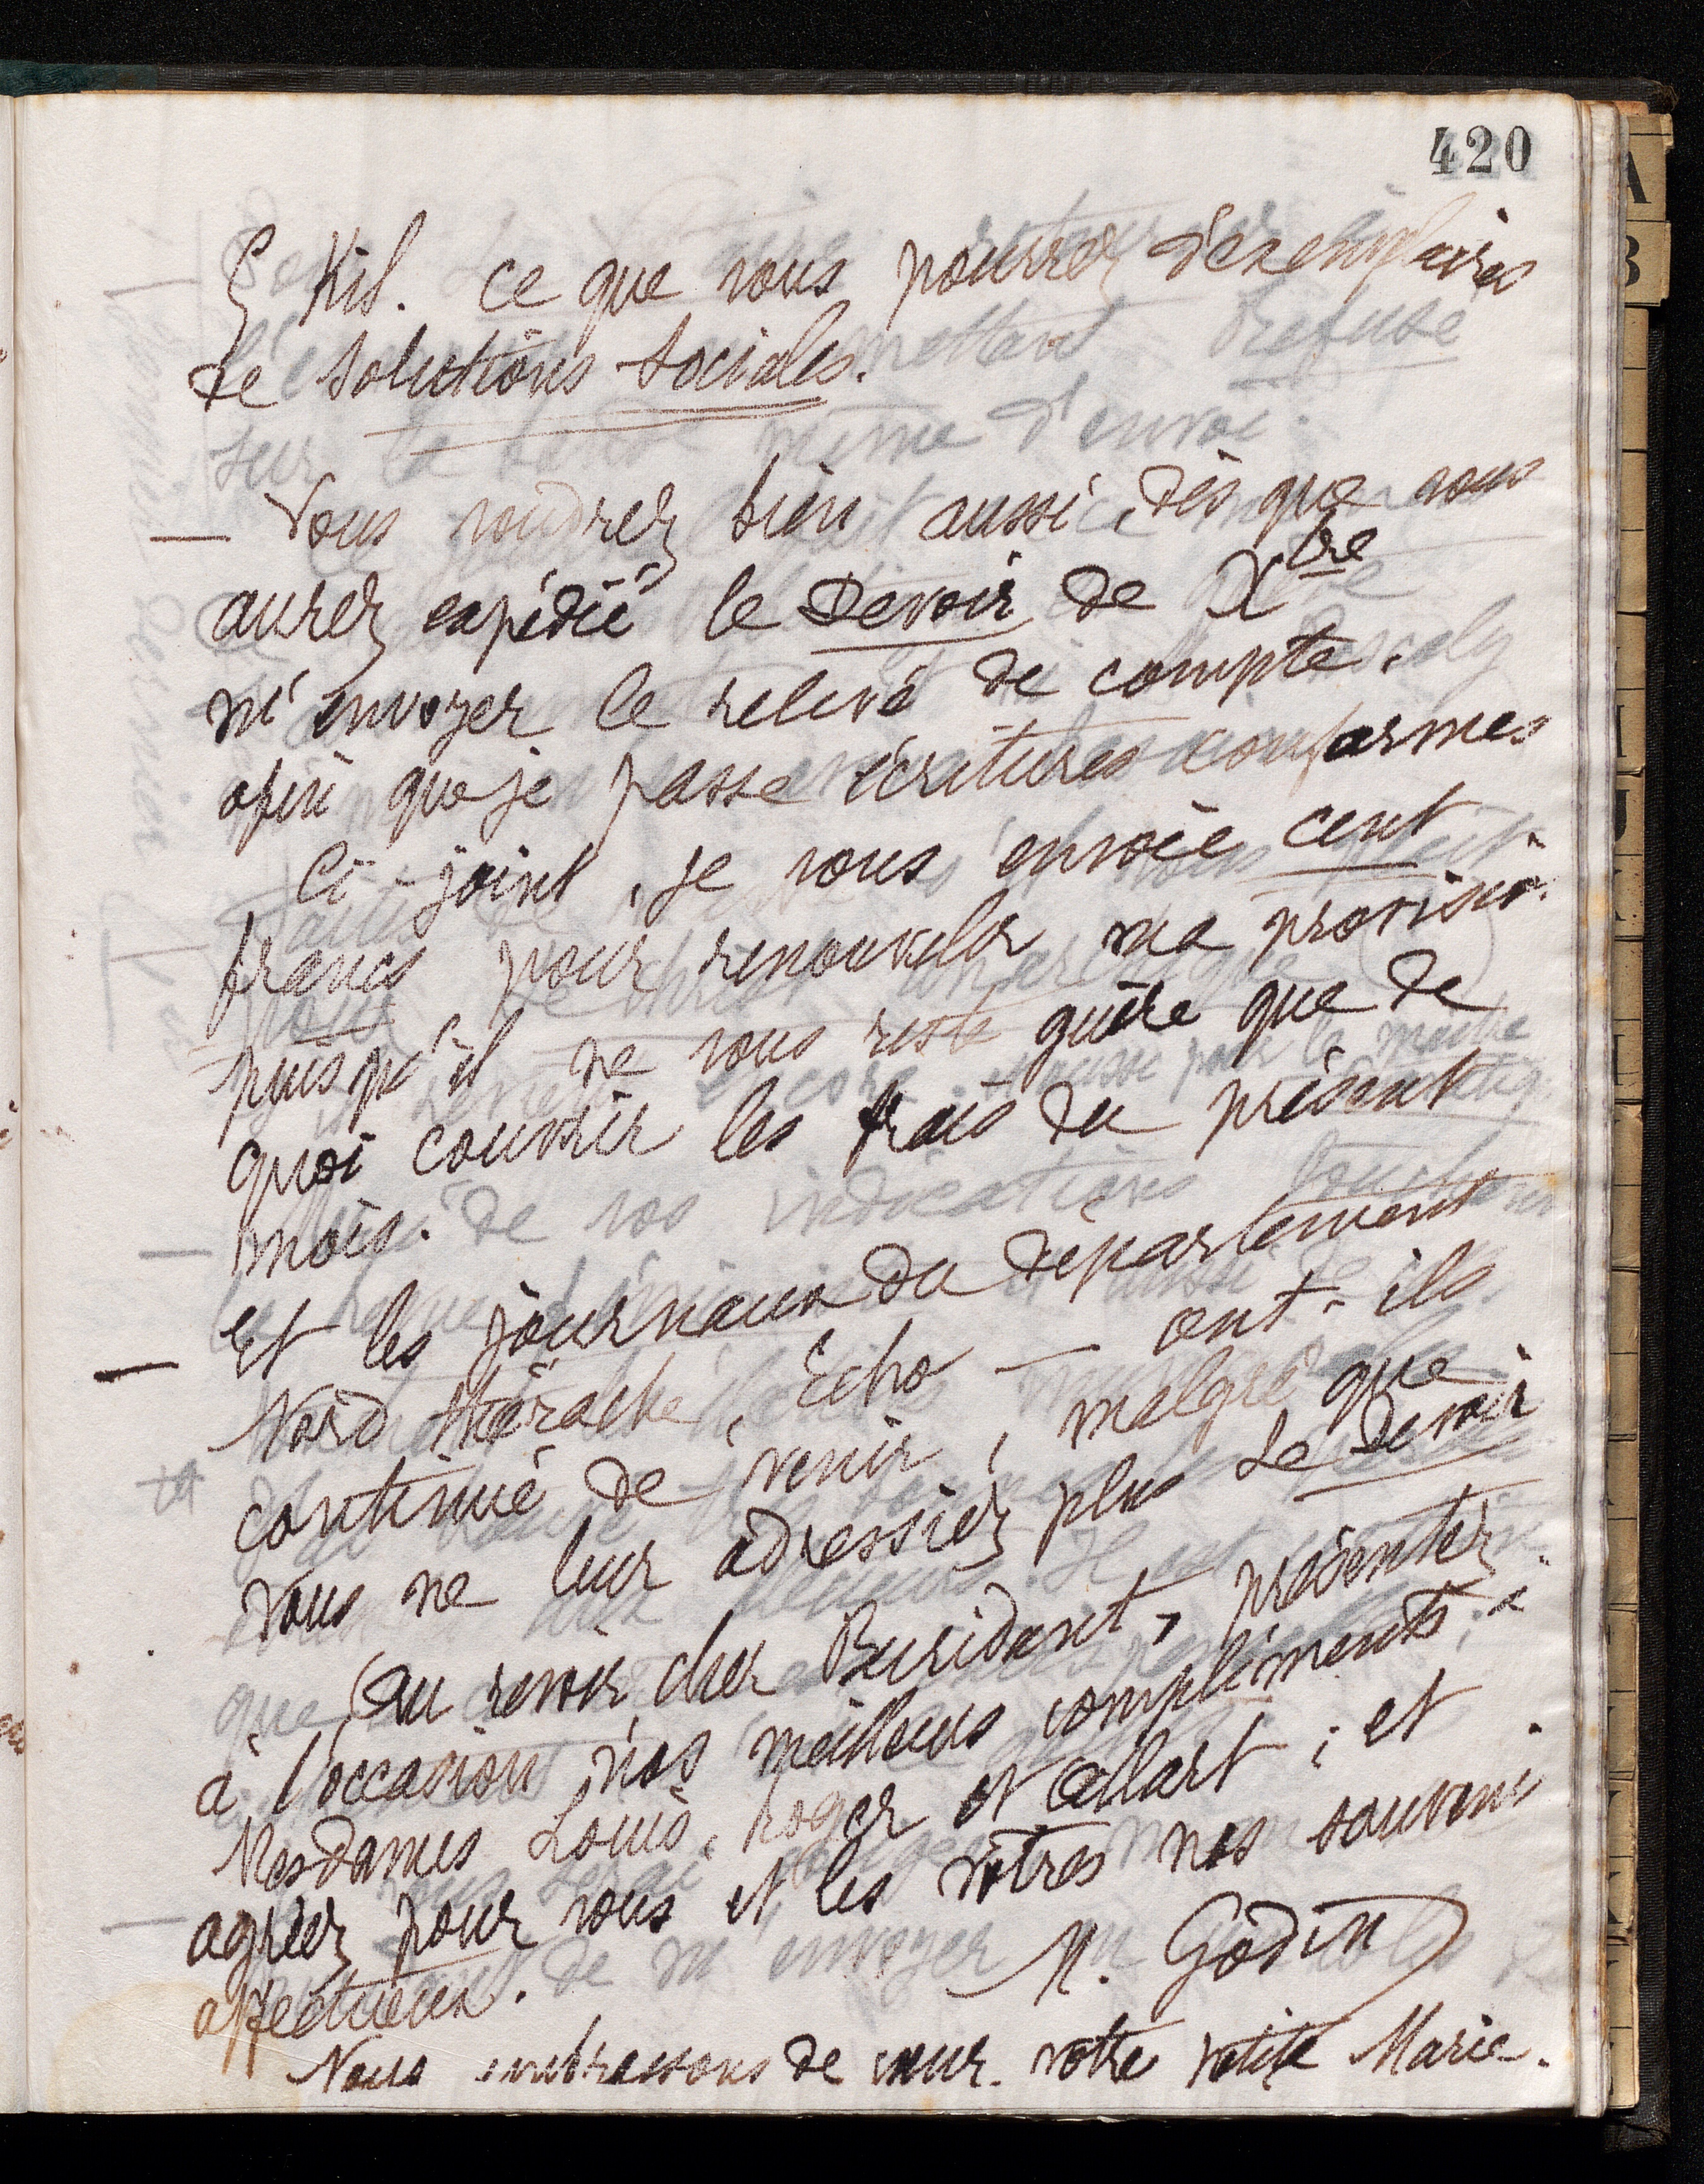 420
5 Kil. ce que vous pourrez d'exemplaires
de Solutions Sociales.
— Vous voudrez bien aussi, dès que vous
aurez expédié le Devoir de Xbre
m'envoyer le relevé de compte.
afin que je passe écritures conformes
Ci-joint, je vous envoie cent
francs pour renouveler ma provision.
puisqu'il ne vous reste guère que de
quoi couvrir les frais du présent
mois.
— Et les journaux du département
Nord Thiérache, Echo — ont-ils
continué de venir, malgré que
vous ne leur adressiez plus Le Devoir
Au revoir, cher Buridant, présentez
à l'occasion nos meilleurs compliments à
Mesdames Louis, Roger et Allart ; et
agréez pour vous et les vôtres nos souvenirs
affectueux.
M. Godin
Nous embrassons de cœur votre petite Marie.